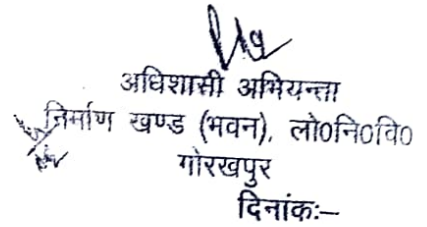 अधिशासी अभियन्ता
निर्माण खण्ड (भवन), लो०नि०वि०
गोरखपुर
दिनांकः–